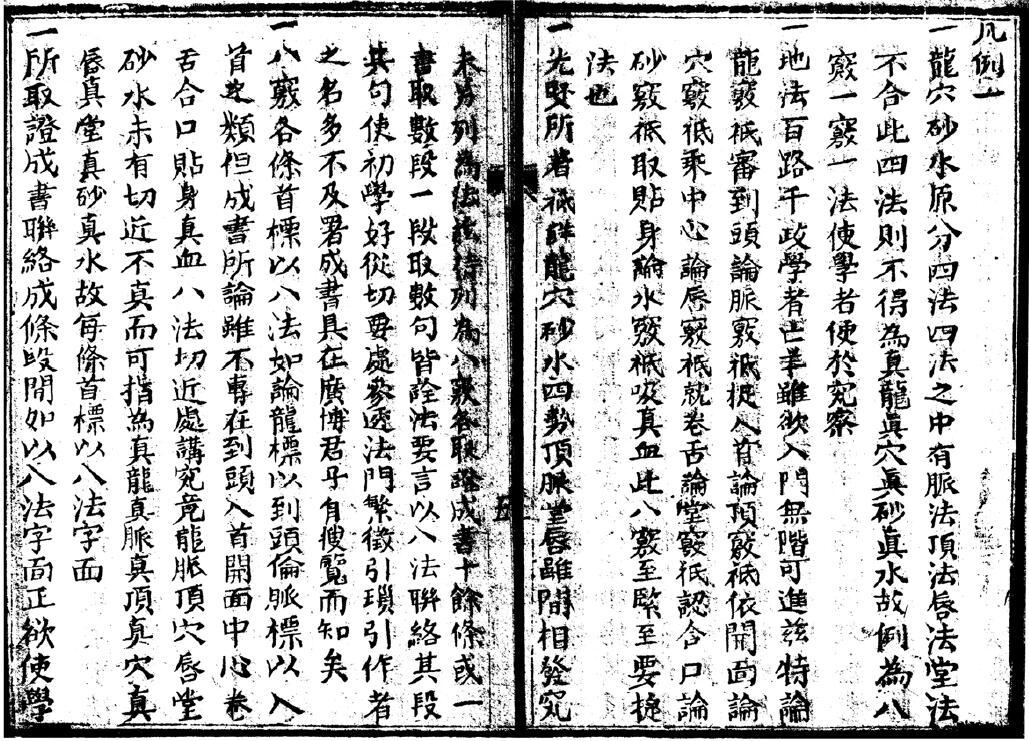 凡例一
一龍穴砂水原分四法四法之中有脈法頂法唇法堂法
不合此四法則不得為真龍真穴真砂真水故例為八
竅一竅一法使學者使於究察
一地法百路千歧學者亡羊雖欲入門無階可進茲特論
龍竅祗審到頭論脈竅祗捉入首論頂竅祗依開面論
穴竅祗乘中心論唇竅祗就卷舌論堂竅祗認合口論
砂竅祗取貼身論水竅祗吸真血此八竅至緊至要捷
法也
一先賢所著祗詳龍穴砂水四勢頂脈堂唇雖間相發究
未另列為法茲特列為八竅各取證成書十餘條或一
書取數段一段取數句皆詮法要言以八法聯絡其段
其句使初學好從切要處參透法門繁徵引瑣引作者
之名多不及署成書具在廣博君子自搜覽而知矣
一八竅各條首標以八法如論龍標以到頭倫脈標以入
首之類但成書所論雖不專在到頭入首開面中心卷
舌合口貼身真血八法切近處講究竟龍脈頂穴唇堂
砂水未有切近不真而可指為真龍真脈真頂真穴真
唇真堂真砂真水故每條首標以八法字面
一所取證成書聯絡成條段間如以八法字面正欲使學
五